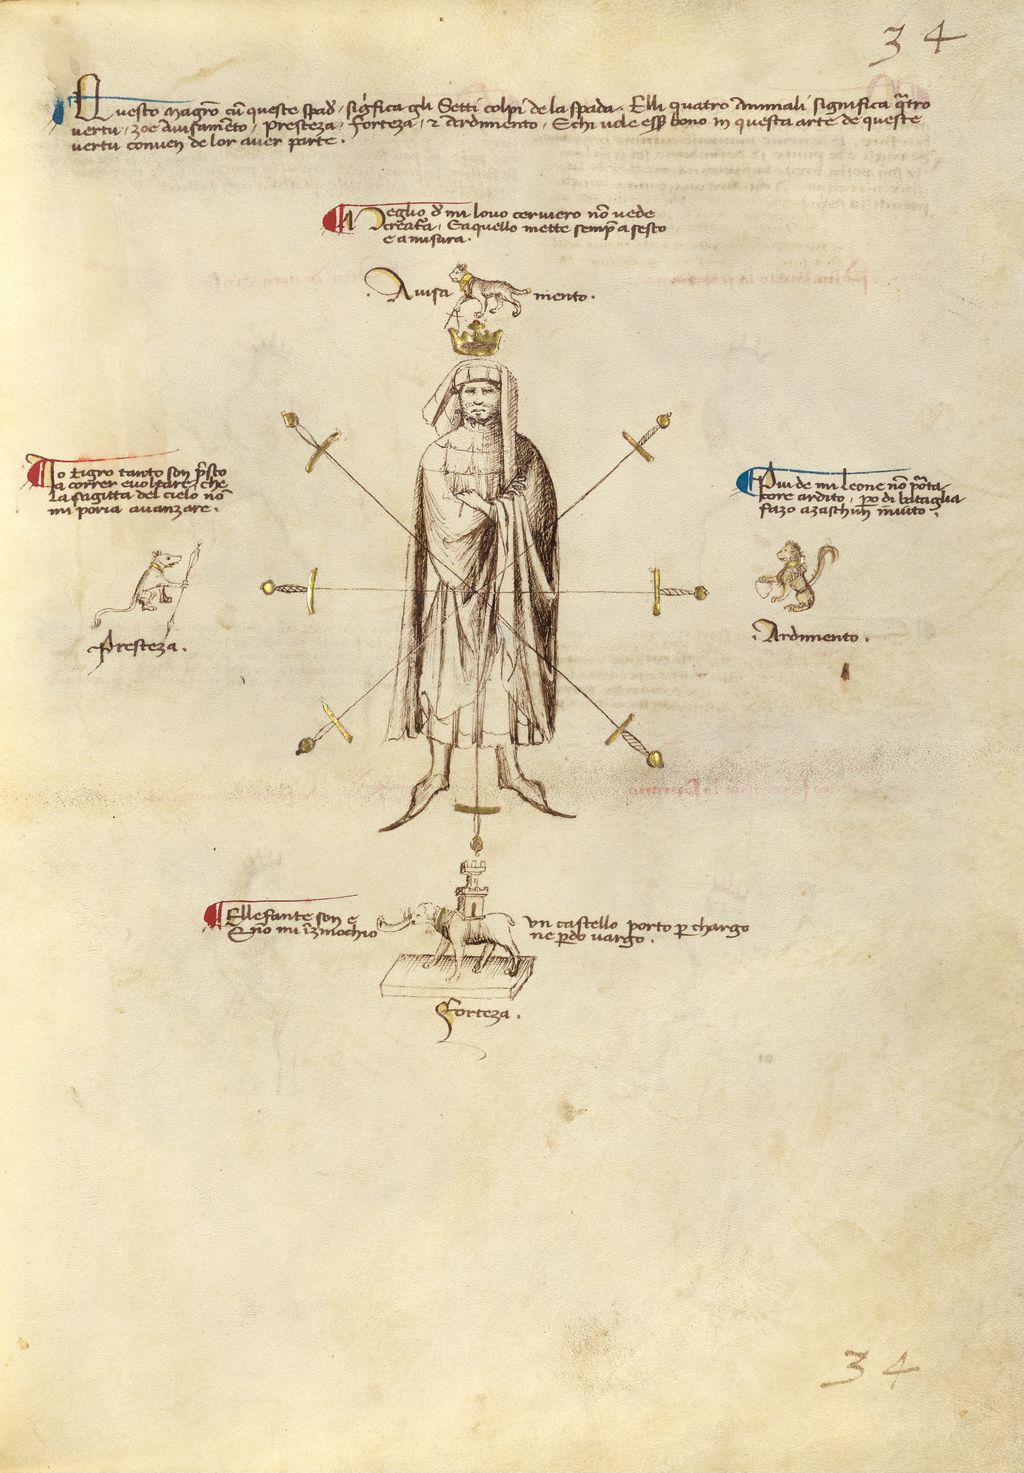 34
Questo Magrō cū queste spadē sig̅fica gli Setti colpi de la spada. Elli quatro Animali significa q̄tro
vertu, zoe Auisamēto, Presteza, Forteza, ⁊ Ardimento. E chi vole ess̄ bono in questa arte de queste
vertu conven de lor aver parte.
Meglio d̄ mi lovo cerviero nō vede
creat̄a, Eaquello mette semp̄ a sesto
e a misura.
. Auisa mento .
Io tigro tanto son p̄sto
a correr e voltare, che
la sagitta del cielo nō
mi poria avanzare .
Presteza .
Piu de mi leone nō porta
core ardito, po di bataglia
fazo azaschun invito .
. Ardimento .
Ellefante son e un castello porto p chargo
E nō mi īzinochio ne p̄do vargo .
Forteza .
34